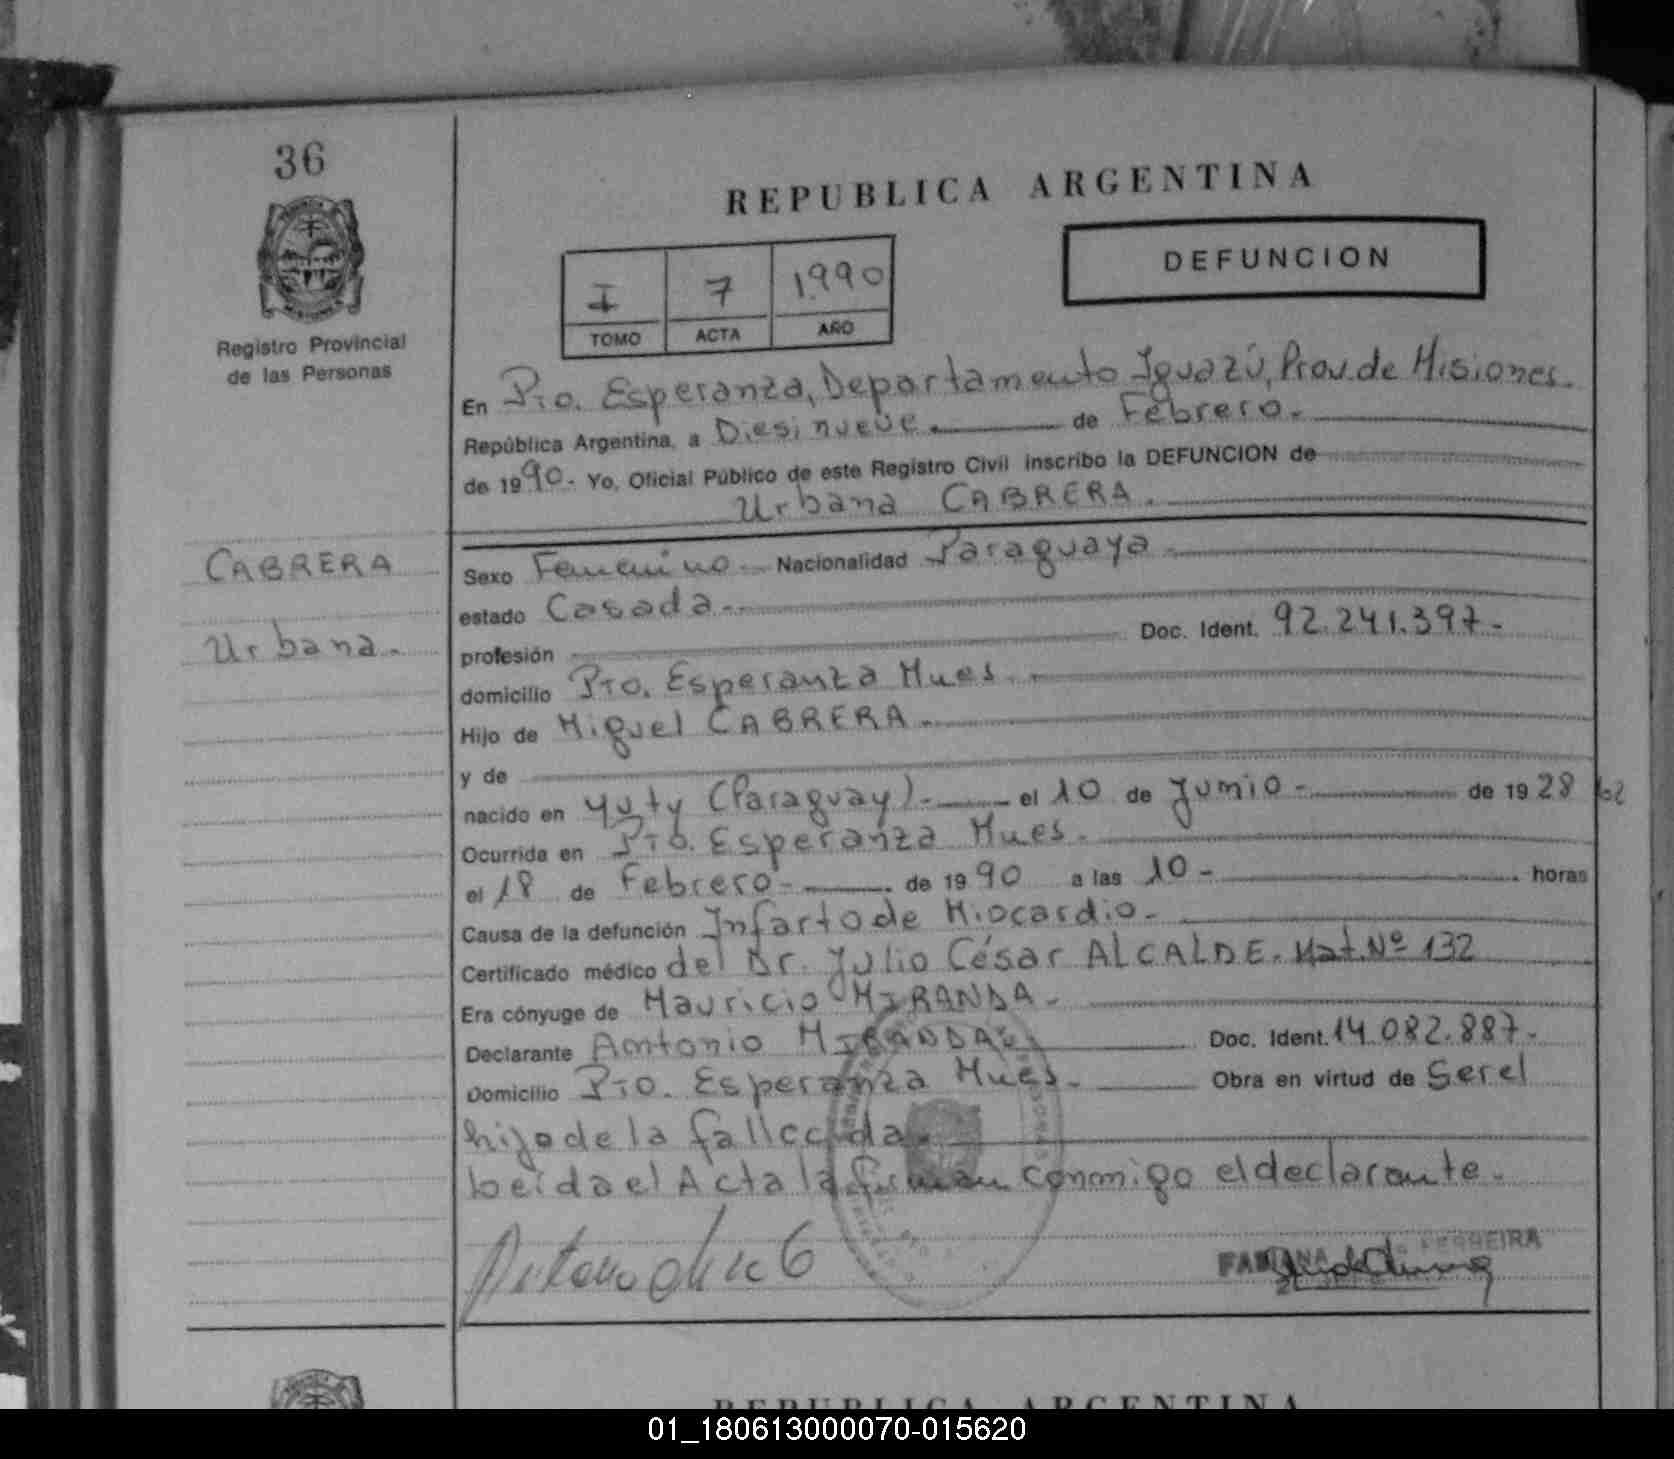 36
REPUBLICA ARGENTINA
DEFUNCION
I 7 1.990
TOMO ACTA AÑO
Registro Provincial
de las Personas
En Pto. Esperanza, Departamento Iguazú, Prov. de Misiones.
República Argentina, a Diesinueve. de Febrero.
de 1990.- Yo, Oficial Público de este Registro Civil inscribo la DEFUNCION de
Urbana CABRERA.
CABRERA
Urbana.
Sexo Femenino. Nacionalidad Paraguaya
estado Casada.-
profesión Doc. Ident. 92.241.397.-
domicilio Pto. Esperanza Mnes.
Hijo de Miguel CABRERA.
y de
nacido en Yuty (Paraguay).- el 10 de Junio.- de 1928 62
Ocurrida en Pto. Esperanza Mnes.
el 18 de Febrero.- de 1990 a las 10.- horas
Causa de la defunción Infarto de Miocardio.-
Certificado médico del Dr. Julio César ALCALDE. Mat. Nº 132
Era cónyuge de Mauricio MIRANDA.-
Declarante Antonio MIRANDA Doc. Ident. 14.082.887.-
Domicilio Pto. Esperanza Mnes.- Obra en virtud de Ser el
hijo de la fallecida.
Leida el Acta la firman conmigo el declarante.
FERREIRA
REPUBLICA ARGENTINA
01_180613000070-015620